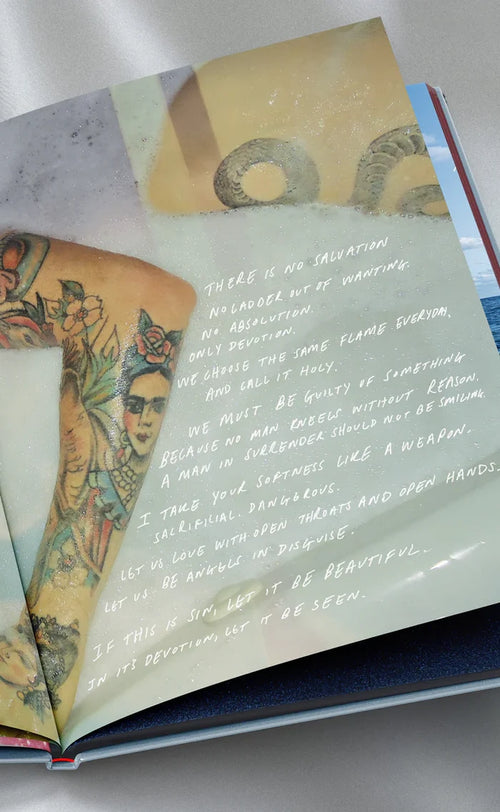 THERE IS NO SALVATION
NO LADDER OUT OF WANTING.
NO ABSOLUTION.
ONLY DEVOTION.
WE CHOOSE THE SAME FLAME EVERYDAY,
AND CALL IT HOLY.
WE MUST BE GUILTY OF SOMETHING
BECAUSE NO MAN KNEELS WITHOUT REASON.
A MAN IN SURRENDER SHOULD NOT BE SMILING.
I TAKE YOUR SOFTNESS LIKE A WEAPON.
SACRIFICIAL. DANGEROUS.
LET US LOVE WITH OPEN THROATS AND OPEN HANDS.
LET US BE ANGELS IN DISGUISE.
IF THIS IS SIN, LET IT BE BEAUTIFUL.
IN IT'S DEVOTION, LET IT BE SEEN.